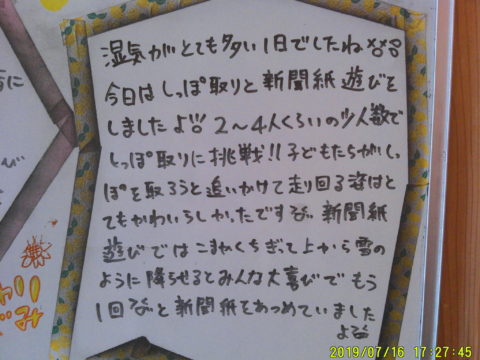 湿気がとても多い1日でしたね
今日はしっぽ取りと新聞紙遊びを
しましたよ!! 2〜4人くらいの少人数で
しっぽ取りに挑戦!!子どもたちがしっ
ぽを取ろうと追いかけて走り回る姿はと
てもかわいらしかったです 新聞紙
遊びではこまかくちぎって上から雪の
ように降らせるとみんな大喜びでもう
1回 と新聞紙をあつめていました
よ
2019/07/16 17:27:45